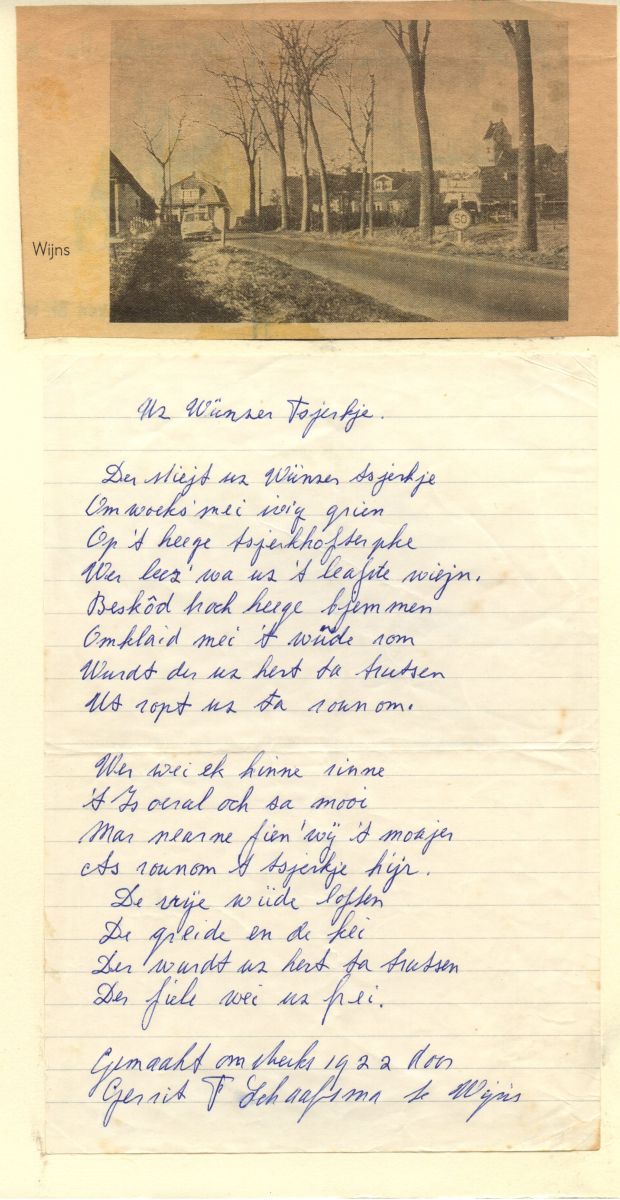 50
Wijns
Uz Wünzer Tsjerkje.
Der stiejt uz Wünzer tsjerkje
Omwoeks' mei ivig grien
Op 't heege tsjerkhofterpke
Wer leez' wa uz 't leafste wiejn.
Beskôd hoch heege bjemmen
Omklaid mei 't wüde rom
Wurdt der uz hert ta trutsen
Ut ropt uz ta rounom.
Wer wei ek hinne rinne
't Is oeral och sa mooi
Mar nearne fien' wÿ 't moajer
As rounom 't tsjerkje hijr.
De vrije wüde loften
De greide en de hei
Der wurdt uz hert ta trutsen
Der fiele wei uz frei.
Gemaakt omstreeks 1922 door
Gerrit F Schaafsma te Wijns